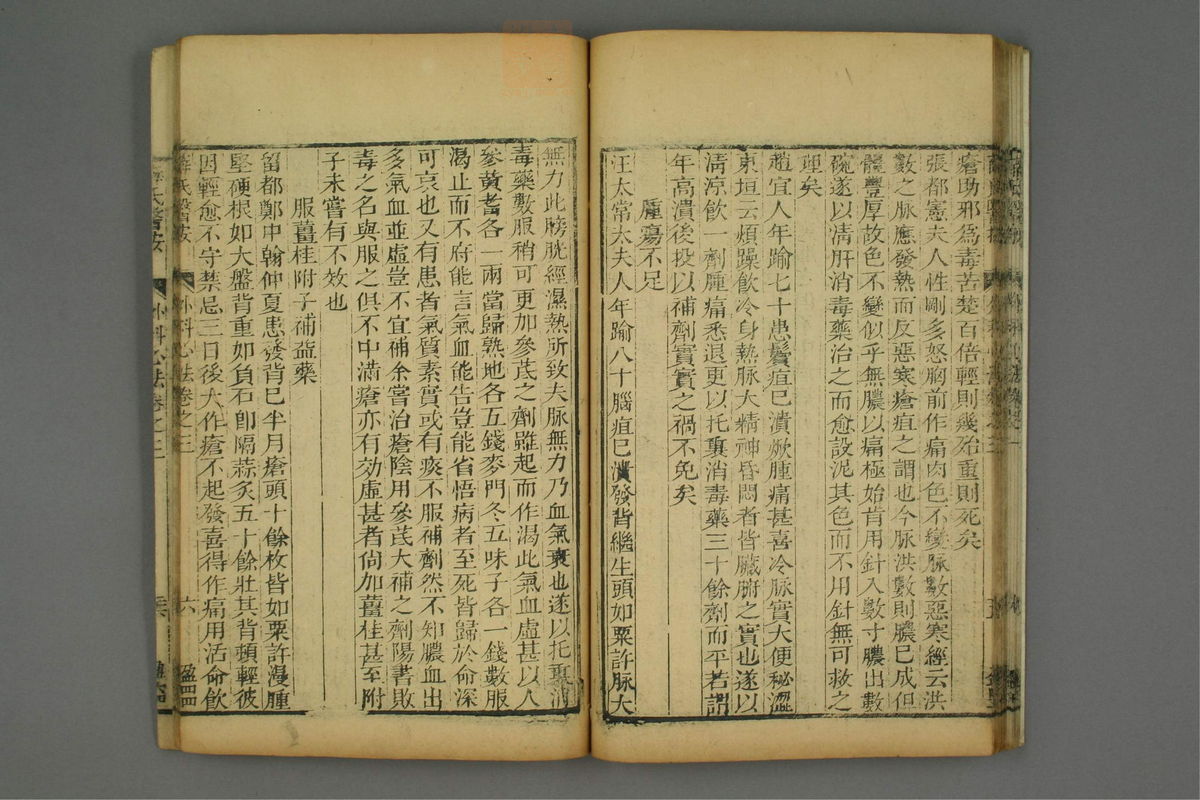 瘡助邪爲毒苦楚百倍輕則幾殆重則死矣
張都憲夫人性剛多怒胸前作痛肉色不變脉數惡寒經云洪
數之脉應發熱而反惡寒瘡疽之謂也今脉洪數則膿已成但
體豐厚故色不變似乎無膿以痛極始肯用針入數寸膿出數
碗遂以清肝消毒藥治之而愈設泥其色而不用針無可救之
理矣
趙宜人年踰七十患鬢疽已潰焮腫痛甚喜冷脉實大便秘澀
東垣云煩躁飲冷身熱脉大精神昏悶者皆臟腑之實也遂以
清涼飲一劑腫痛悉退更以托裏消毒藥三十餘劑而平若謂
年高潰後投以補劑實實之禍不免矣
腫瘍不足
汪太常太夫人年踰八十腦疽已潰發背繼生頭如粟許脉大
無力此膀胱經濕熱所致夫脉無力乃血氣衰也遂以托裏消
毒藥數服稍可更加參芪之劑雖起而作渴此氣血虛甚以人
參黃耆各一兩當歸熟地各五錢麥門冬五味子各一錢數服
渴止而不府能言氣血能告豈能省悟病者至死皆歸於命深
可哀也又有患者氣質素實或有痰不服補劑然不知膿血出
多氣血並虛豈不宜補余嘗治瘡陰用參芪大補之劑陽書敗
毒之名與服之俱不中滿瘡亦有効虛甚者尙加薑桂甚至附
子未嘗有不效也
服薑桂附子補益藥
留都鄭中翰仲夏患發背已半月瘡頭十餘枚皆如粟許漫腫
堅硬根如大盤背重如負石卽隔蒜灸五十餘壯其背頓輕彼
因輕愈不守禁忌三日後大作瘡不起發喜得作痛用活命飲
薛氏醫按 外科心法卷之三 六 盈四